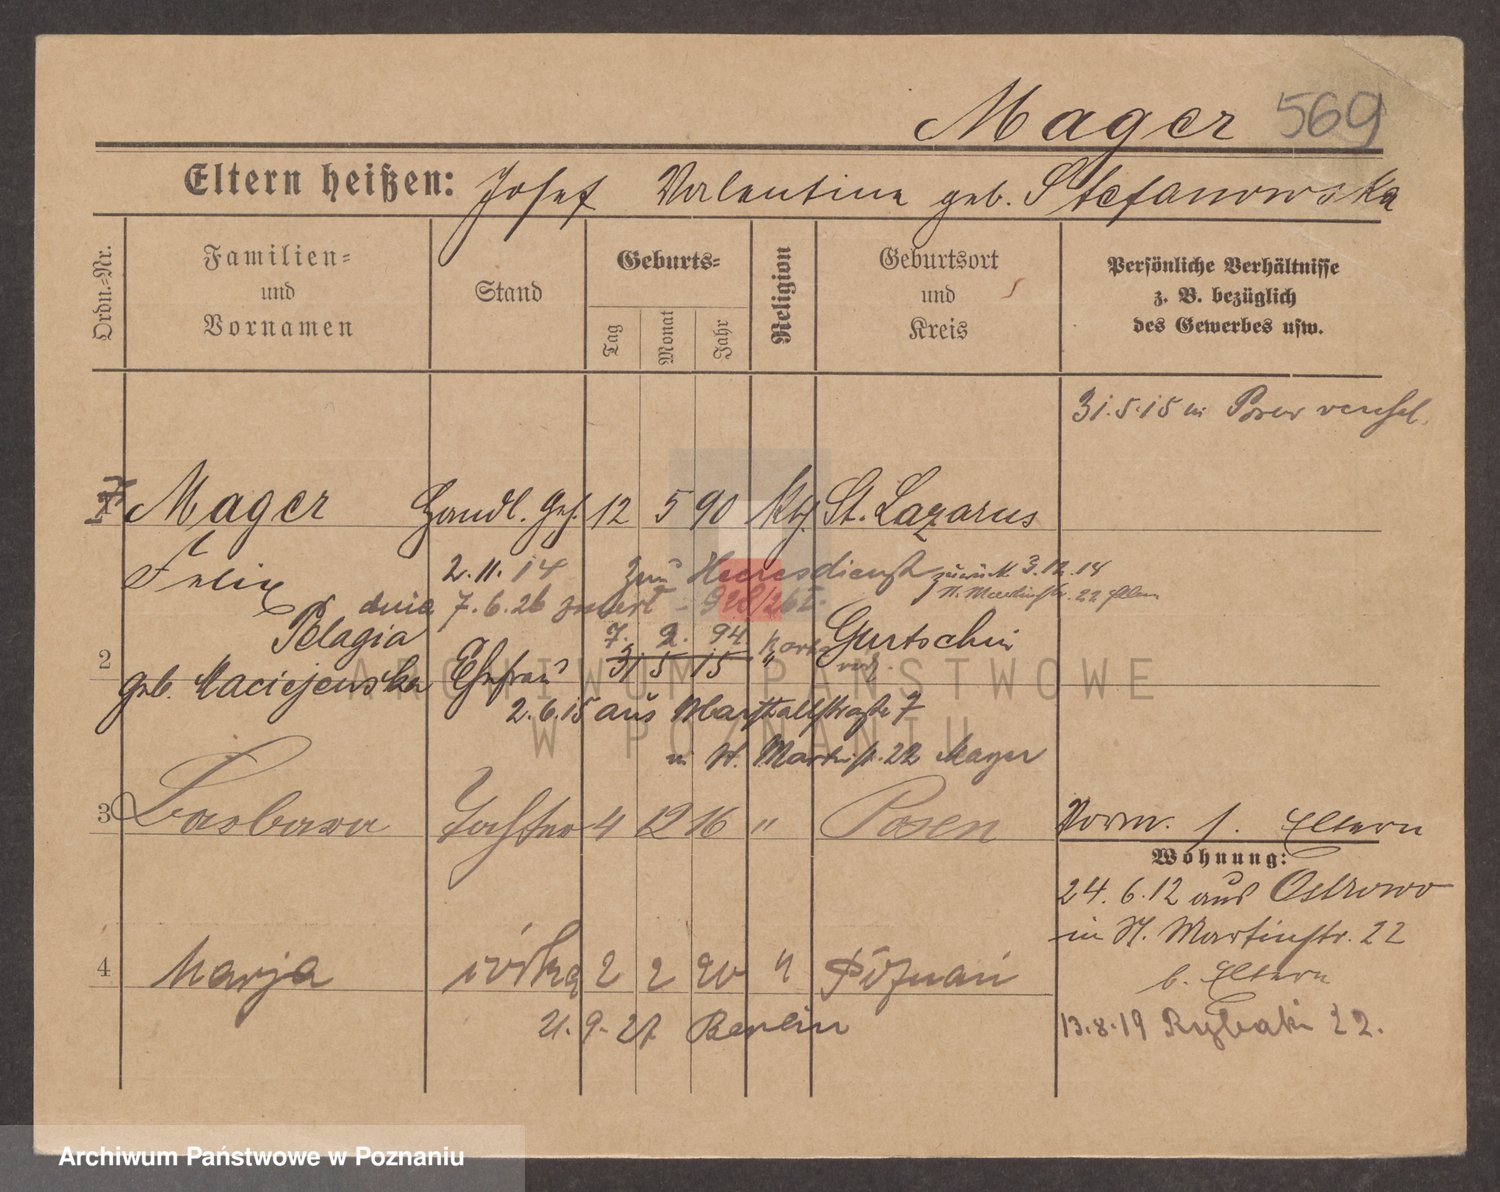 Mager 569
Eltern heißen: Josef Valentine geb. Stefanowska
Ordn.=Nr.
Familien=
und
Vornamen
Stand
Geburts=
Tag
Monat
Jahr
Religion
Geburtsort
und
Kreis
Persönliche Verhältnisse
z. B. bezüglich
des Gewerbes usw.
31.5.15 in Posen verehel.
1 Mager Handl. Geh. 12 5 90 Kth. St. Lazarus
Felix 2.11.14 Zum Heeresdienst zurück 3.12.14
St. Martinstr. 22 Eltern
dnia 7.6.26 zmarł
Pelagia 7. 2. 94. Gurtschin
2 geb. Maciejewska Ehefrau 31 5 15 "
2.6.15 aus Marstallstraße 7
in St. Martinstr. 22 Mager
3 Barbara Tochter 4 12 16 " Posen
Norm. s. Eltern
Wohnung:
24.6.12 aus Ostrowo
in St. Martinstr. 22
b. Eltern
4 Marja córka 2 2 20 " Poznań
21.9.27 Berlin
13.8.19 Rybaki 22.
ARCHIWUM PAŃSTWOWE
W POZNANIU
Archiwum Państwowe w Poznaniu